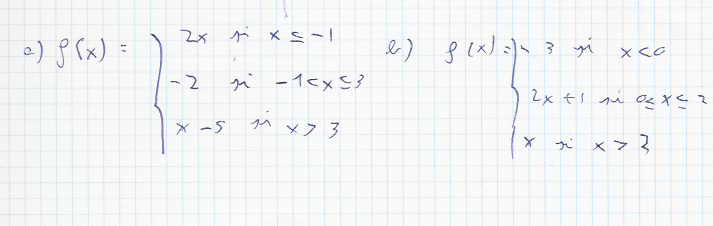 a) f(x) = { 2x si x ≤ -1
-2 si -1<x≤3
x-5 si x>3
b) f(x) = { 3 si x<0
2x+1 si 0≤x≤2
x si x>